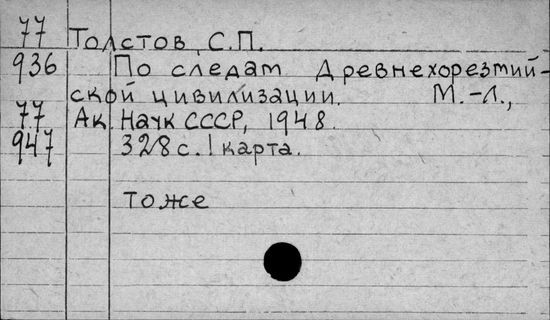 77 Толстов, С.П.
936 По следам Древнехорезмий-
ской цивилизации. М.-Л.,
77 Ак. Наук СССР, 1948.
947 328 с. 1 карта.
тоже